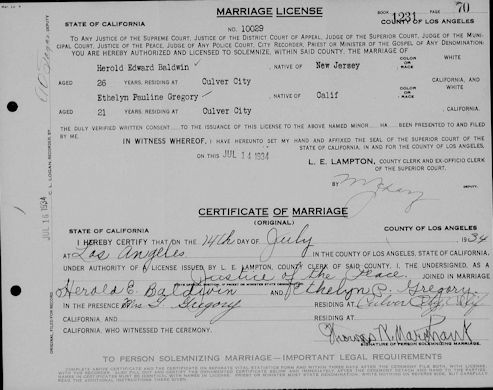 MARRIAGE LICENSE
BOOK 1231 PAGE 70
STATE OF CALIFORNIA COUNTY OF LOS ANGELES
NO. 10029
TO ANY JUSTICE OF THE SUPREME COURT, JUSTICE OF THE DISTRICT COURT OF APPEAL, JUDGE OF THE SUPERIOR COURT, JUDGE OF THE MUNI-
CIPAL COURT, JUSTICE OF THE PEACE, JUDGE OF ANY POLICE COURT, CITY RECORDER, PRIEST OR MINISTER OF THE GOSPEL OF ANY DENOMINATION:
YOU ARE HEREBY AUTHORIZED AND LICENSED TO SOLEMNIZE, WITHIN SAID COUNTY, THE MARRIAGE OF
Herold Edward Baldwin , NATIVE OF New Jersey COLOR OR RACE WHITE
AGED 26 YEARS, RESIDING AT Culver City CALIFORNIA, AND
Ethelyn Pauline Gregory , NATIVE OF Calif COLOR OR RACE WHITE
AGED 21 YEARS, RESIDING AT Culver City , CALIFORNIA.
THE DULY VERIFIED WRITTEN CONSENT TO THE ISSUANCE OF THIS LICENSE TO THE ABOVE NAMED MINOR HA BEEN PRESENTED TO AND FILED
BY ME.
IN WITNESS WHEREOF, I HAVE HERETO SET MY HAND AND AFFIXED THE SEAL OF THE SUPERIOR COURT OF THE
STATE OF CALIFORNIA, IN AND FOR THE COUNTY OF LOS ANGELES,
ON THIS JUL 14 1934
L. E. LAMPTON, COUNTY CLERK AND EX-OFFICIO CLERK
OF THE SUPERIOR COURT.
BY DEPUTY.
CERTIFICATE OF MARRIAGE
(ORIGINAL)
STATE OF CALIFORNIA COUNTY OF LOS ANGELES
I HEREBY CERTIFY THAT ON THE 14th DAY OF July 1934
AT Los Angeles IN THE COUNTY OF LOS ANGELES, STATE OF CALIFORNIA,
UNDER AUTHORITY OF A LICENSE ISSUED BY L. E. LAMPTON, COUNTY CLERK OF SAID COUNTY, I, THE UNDERSIGNED AS A
Justice of the Peace JOINED IN MARRIAGE
Herold E. Baldwin AND Ethelyn P. Gregory
IN THE PRESENCE Mrs Gregory RESIDING AT Culver City, Calif
CALIFORNIA, AND RESIDING AT
CALIFORNIA, WHO WITNESSED THE CEREMONY.
SIGNATURE OF PERSON SOLEMNIZING MARRIAGE
TO PERSON SOLEMNIZING MARRIAGE—IMPORTANT LEGAL REQUIREMENTS
JUL 16 1934
C. L. LOGAN, RECORDER BY
DEPUTY
ORIGINAL FILED FOR RECORD